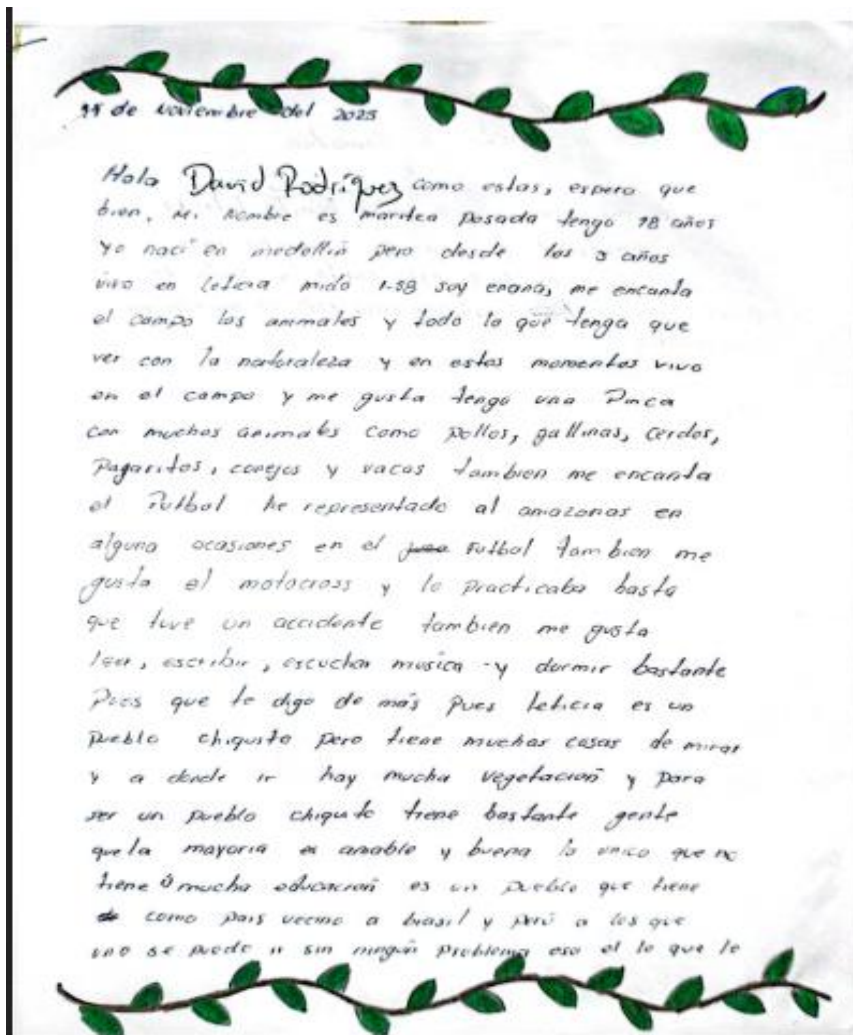 de Noviembre del 2025
Hola David Rodríguez como estas, espero que
bien, Mi Nombre es posada tengo 18 años
yo naci en medellin pero desde los 3 años
vivo en leticia mido 1.58 soy enana, me encanta
el campo los animales y todo lo que tenga que
ver con la naturaleza y en estos momentos vivo
en el campo y me gusta tengo una Finca
con muchos animales como pollos, gallinas, cerdos,
Pagaritos, conejos y vacas tambien me encanta
el Futbol he representado al amazonas en
alguna ocasiones en el Futbol tambien me
gusta el motocross y lo practicaba hasta
que tuve un accidente tambien me gusta
leer, escribir, escuchar musica y dormir bastante
Pues que te digo de más pues leticia es un
pueblo chiquito pero tiene muchas cosas de mirar
y a donde ir hay mucha vegetacion y para
ser un pueblo chiquito tiene bastante gente
que la mayoria es amable y buena lo unico que no
tiene mucha educacion es un pueblo que tiene
como pais vecino a brasil y perú a los que
uno se puede ir sin ningún problema eso el lo que lo